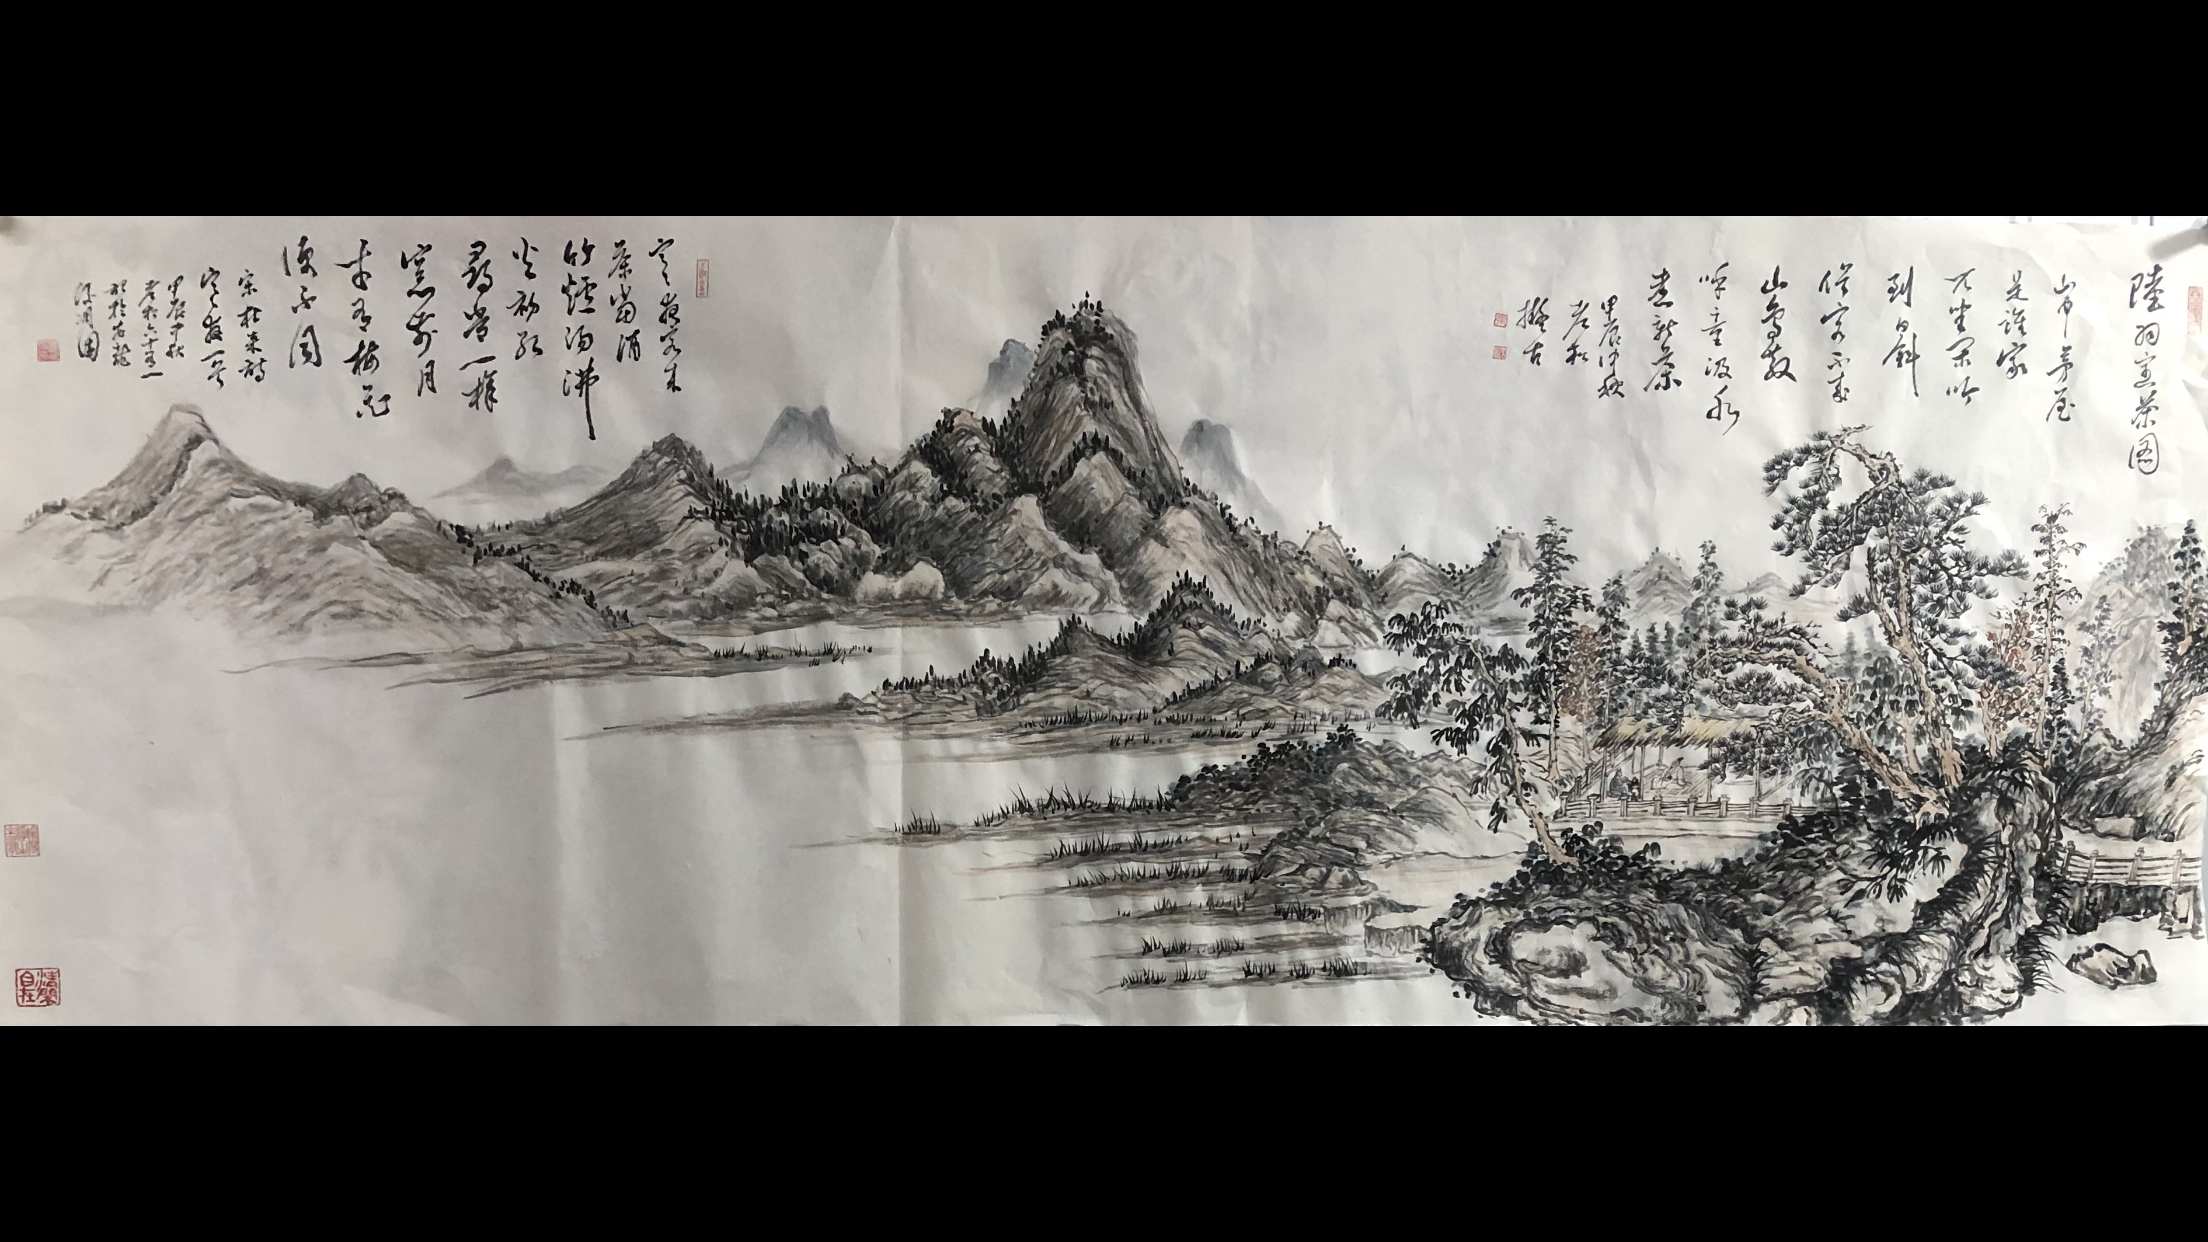 陸羽烹茶图
山中茅屋
是誰家
兀坐闲吟
到日斜
俗客不来
山鳥散
呼童汲水
煮新茶
甲辰仲秋
老松
擬古
寒夜客来
茶當酒
竹爐湯沸
火初红
尋常一樣
窓前月
才有梅花
便不同
宋杜耒詩
寒夜一首
甲辰中秋
老松六十有一